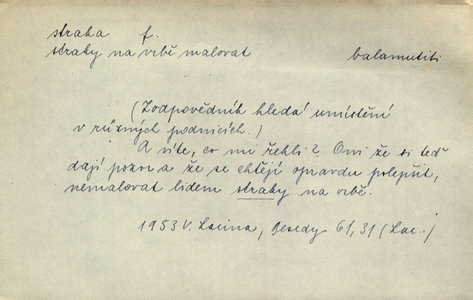 straka f.
straky na vrbě malovat balamutiti
(Zodpovědník hledá umístění
v různých podnicích.)
A víte, co mu řekli? Oni že si teď
dají pozor a že se chtějí opravdu polepšit,
nemalovat lidem straky na vrbě.
1953 V. Lacina, Besedy 61, 31 (Lac.)